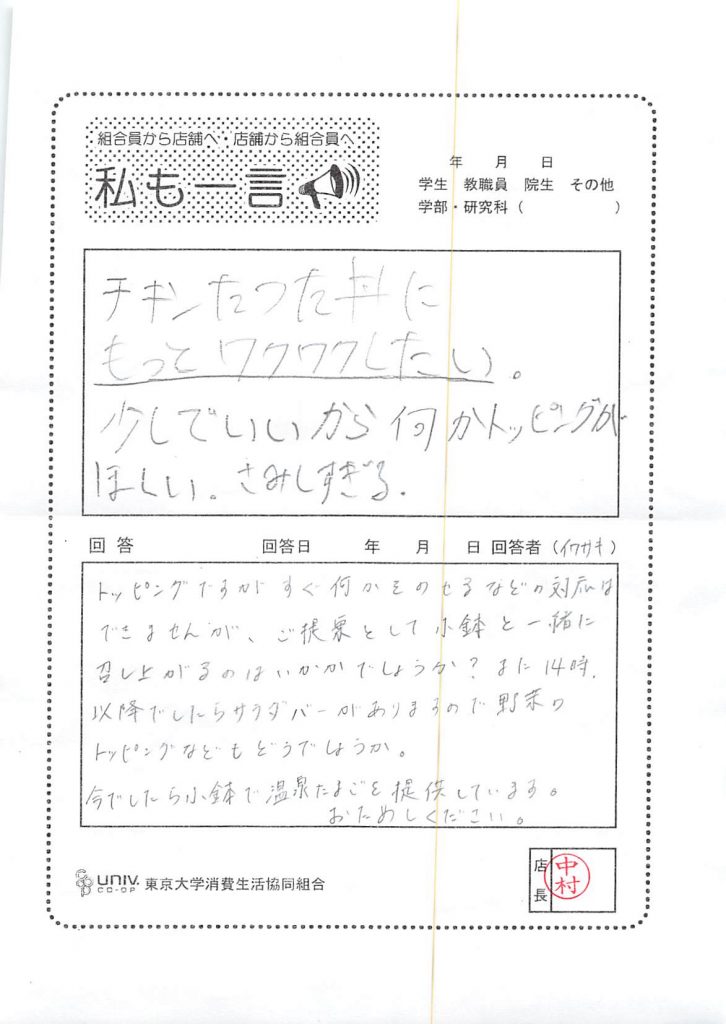 組合員から店舗へ・店舗から組合員へ
私も一言
年 月 日
学生 教職員 院生 その他
学部・研究科（ ）
チキンたつた丼に
もっとワクワクしたい。
少しでいいから何かトッピングが
ほしい。さみしすぎる.
回答 回答日 年 月 日 回答者（イワサキ）
トッピングですがすぐ何かをのせるなどの対応は
できませんが、ご提案として小鉢と一緒に
召し上がるのはいかがでしょうか？また14時.
以降でしたらサラダバーがありますので野菜の
トッピングなどもどうでしょうか。
今でしたら小鉢で温泉たまごを提供しています。
おためしください。
coop UNIV. CO-OP 東京大学消費生活協同組合
店長 中村